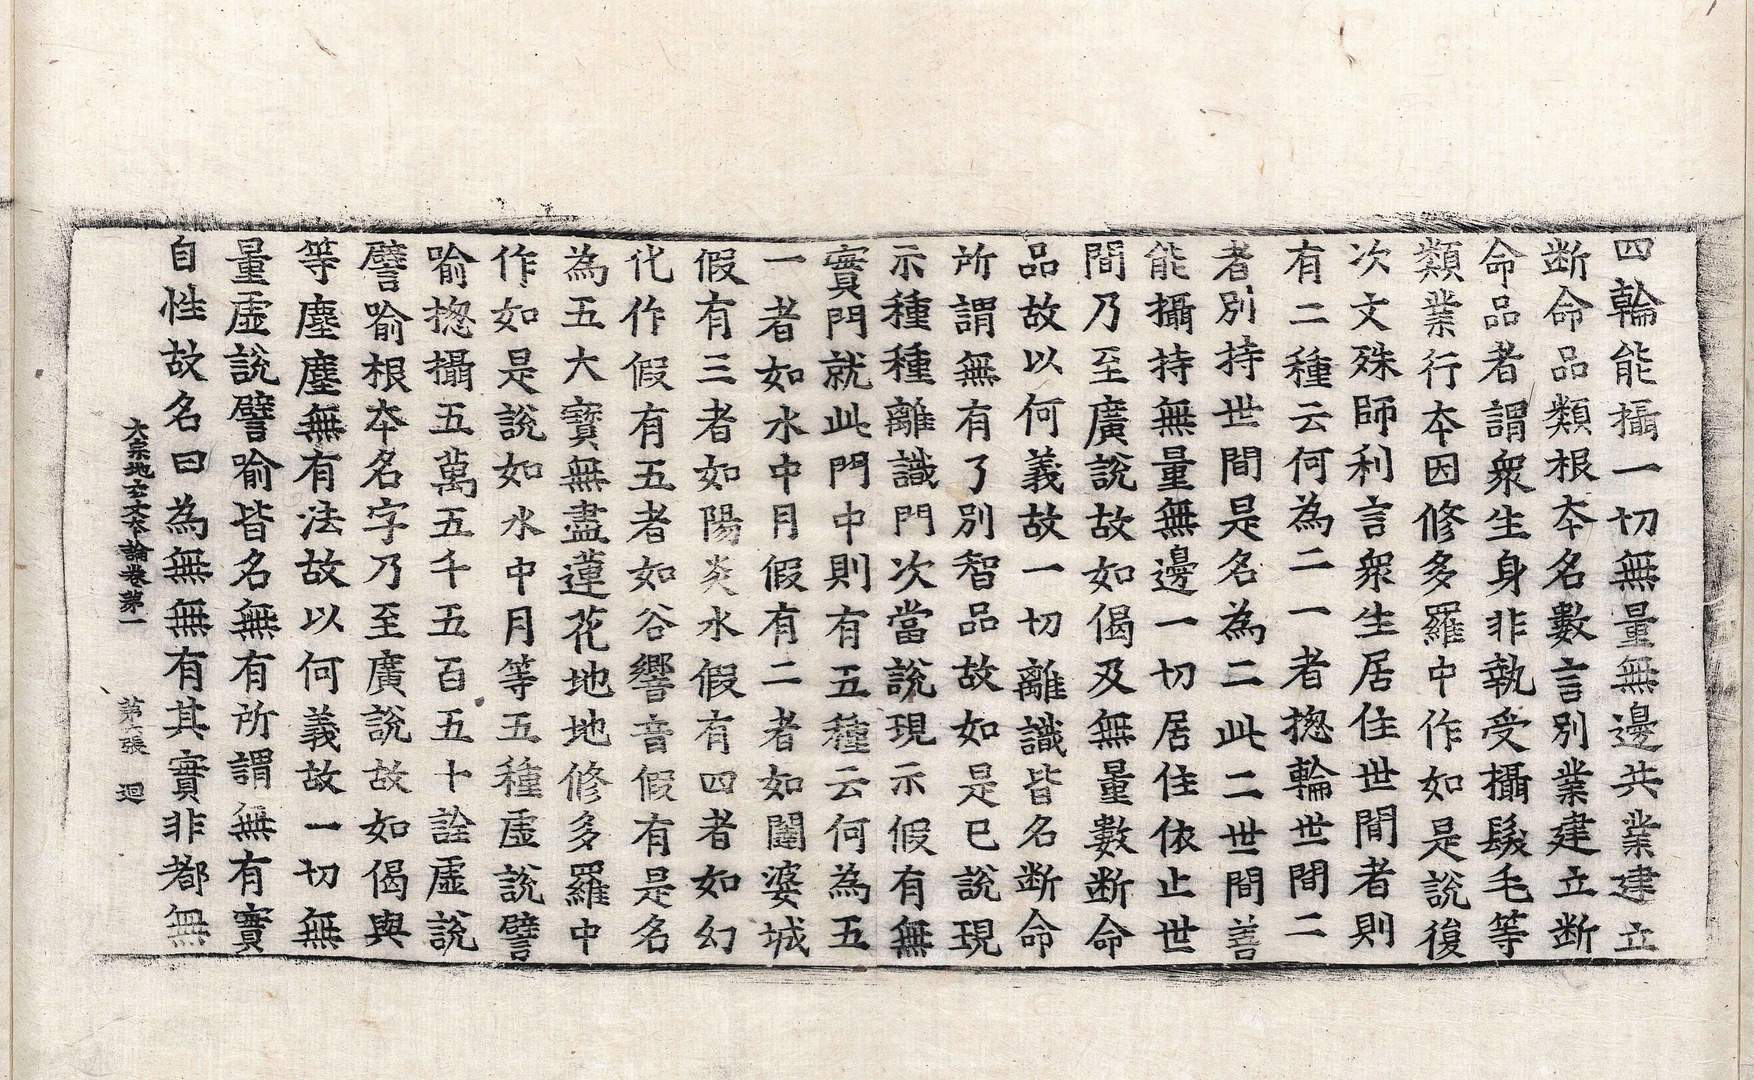 四輪能攝一切無量無邊共業建立
断命品類根夲名數言別業建立断
命品者謂衆生身非執受攝髮毛等
類業行夲因修多羅中作如是說復
次文殊師利言衆生居住世間者則
有二種云何為二一者揔輪世間二
者別持世間是名為二此二世間善
能攝持無量無邊一切居住依止世
間乃至廣說故如偈及無量數断命
品故以何義故一切離識皆名断命
所謂無有了別智品故如是已說現
示種種離識門次當說現示假有無
實門就此門中則有五種云何為五
一者如水中月假有二者如闥婆城
假有三者如陽炎水假有四者如幻
化作假有五者如谷響音假有是名
為五大寶無盡蓮花地地修多羅中
作如是說如水中月等五種虛說譬
喻揔攝五萬五千五百五十詮虛說
譬喻根夲名字乃至廣說故如偈與
等塵塵無有法故以何義故一切無
量虛說譬喻皆名無有所謂無有實
自性故名曰為無無有其實非都無
大宗地玄文夲論卷苐一 苐六張 迴